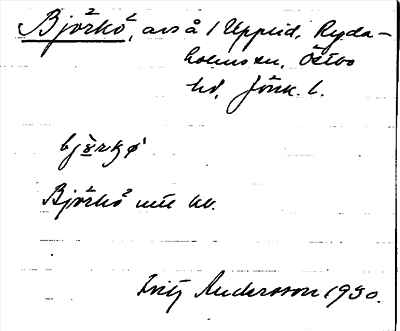 Björkö, avs å 1 Upplid, Ryda-
holms sn, Östbo
hd, Jönk. l.
björkø
Björkö utt kv.
Fritz Andersson 1930.